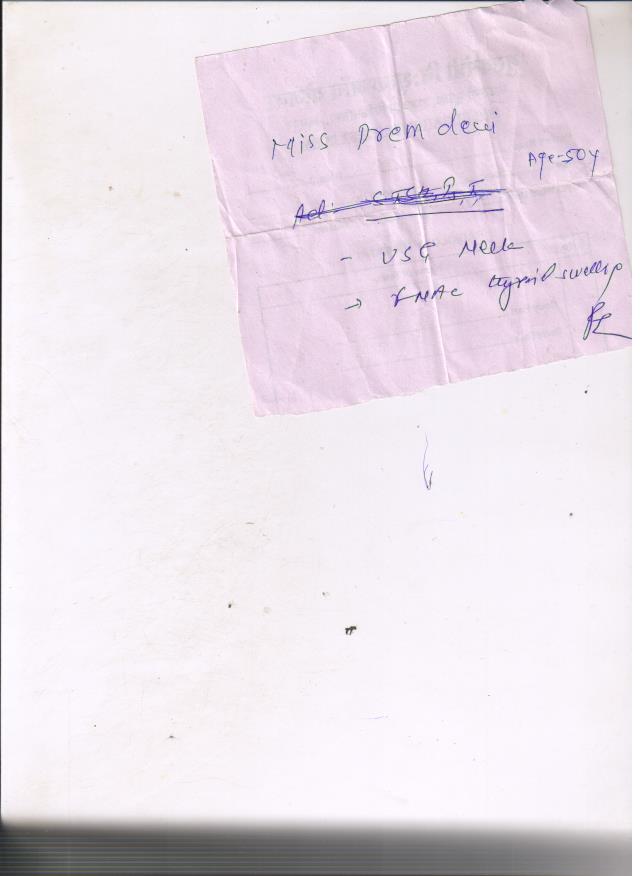 Miss Prem devi
Age-50y
Ad:
- USG Neck
→ FNAC thyroid swelling